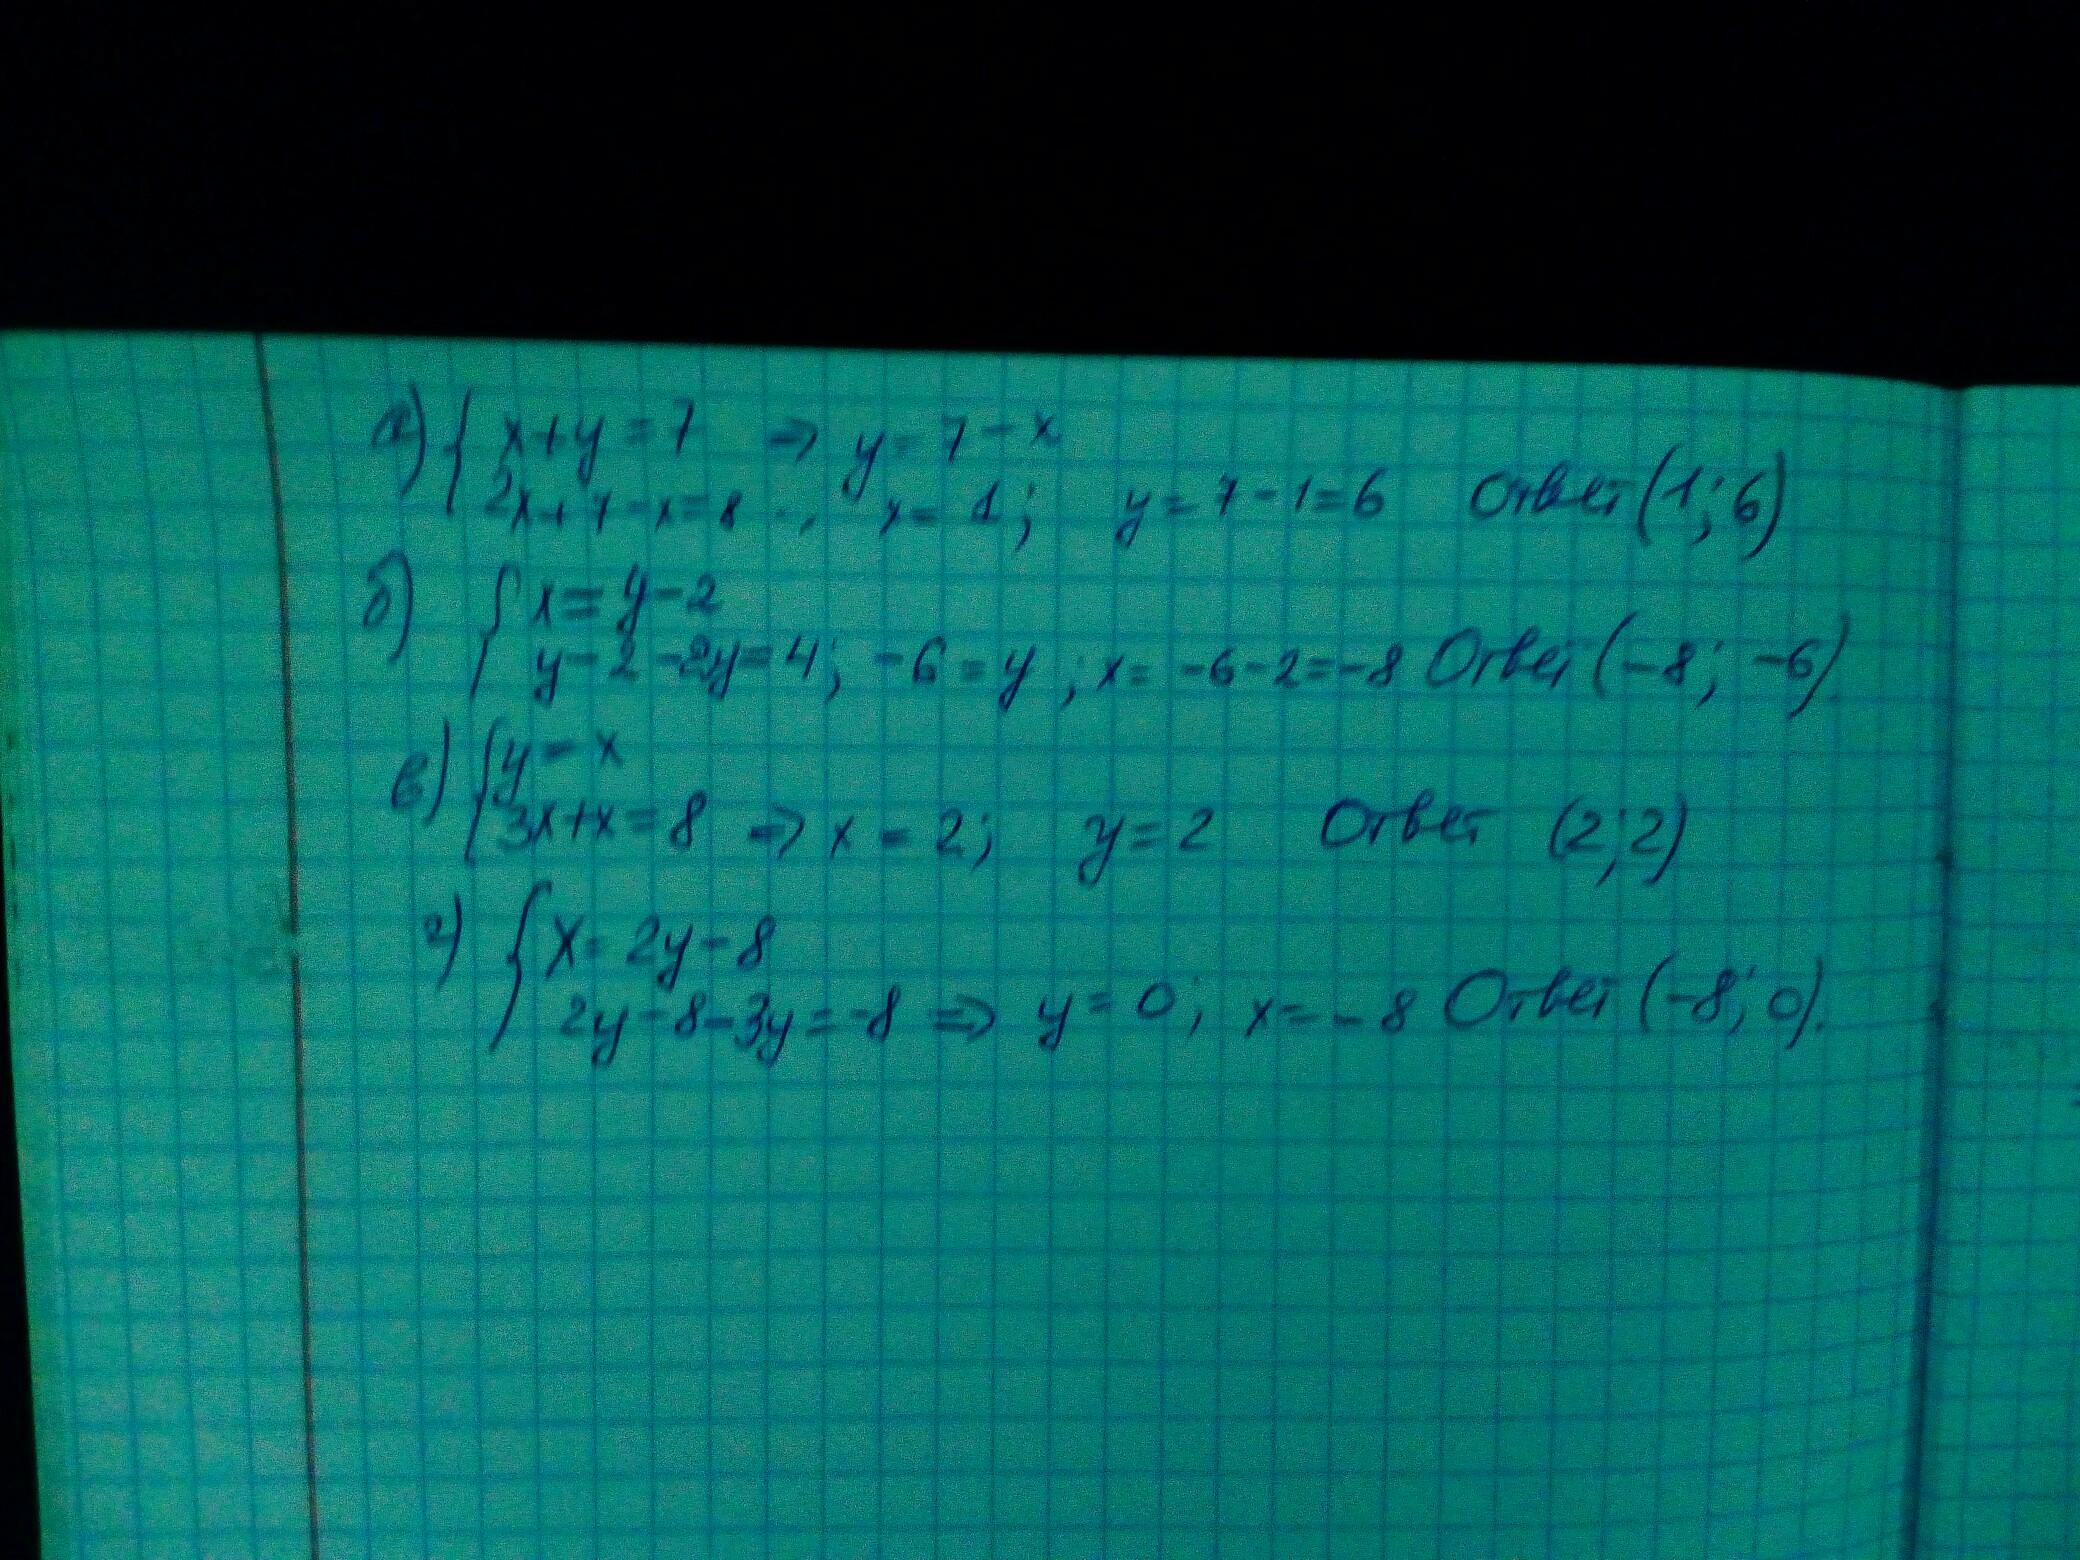 а) { x+y=7 => y=7-x
2x+7-x=8 x=1; y=7-1=6 Ответ (1;6)
б) { x=y-2
y-2-2y=4; -6=y; x=-6-2=-8 Ответ (-8; -6).
в) { y=x
3x+x=8 => x=2; y=2 Ответ (2;2)
г) { x=2y-8
2y-8-3y=-8 => y=0; x=-8 Ответ (-8; 0).